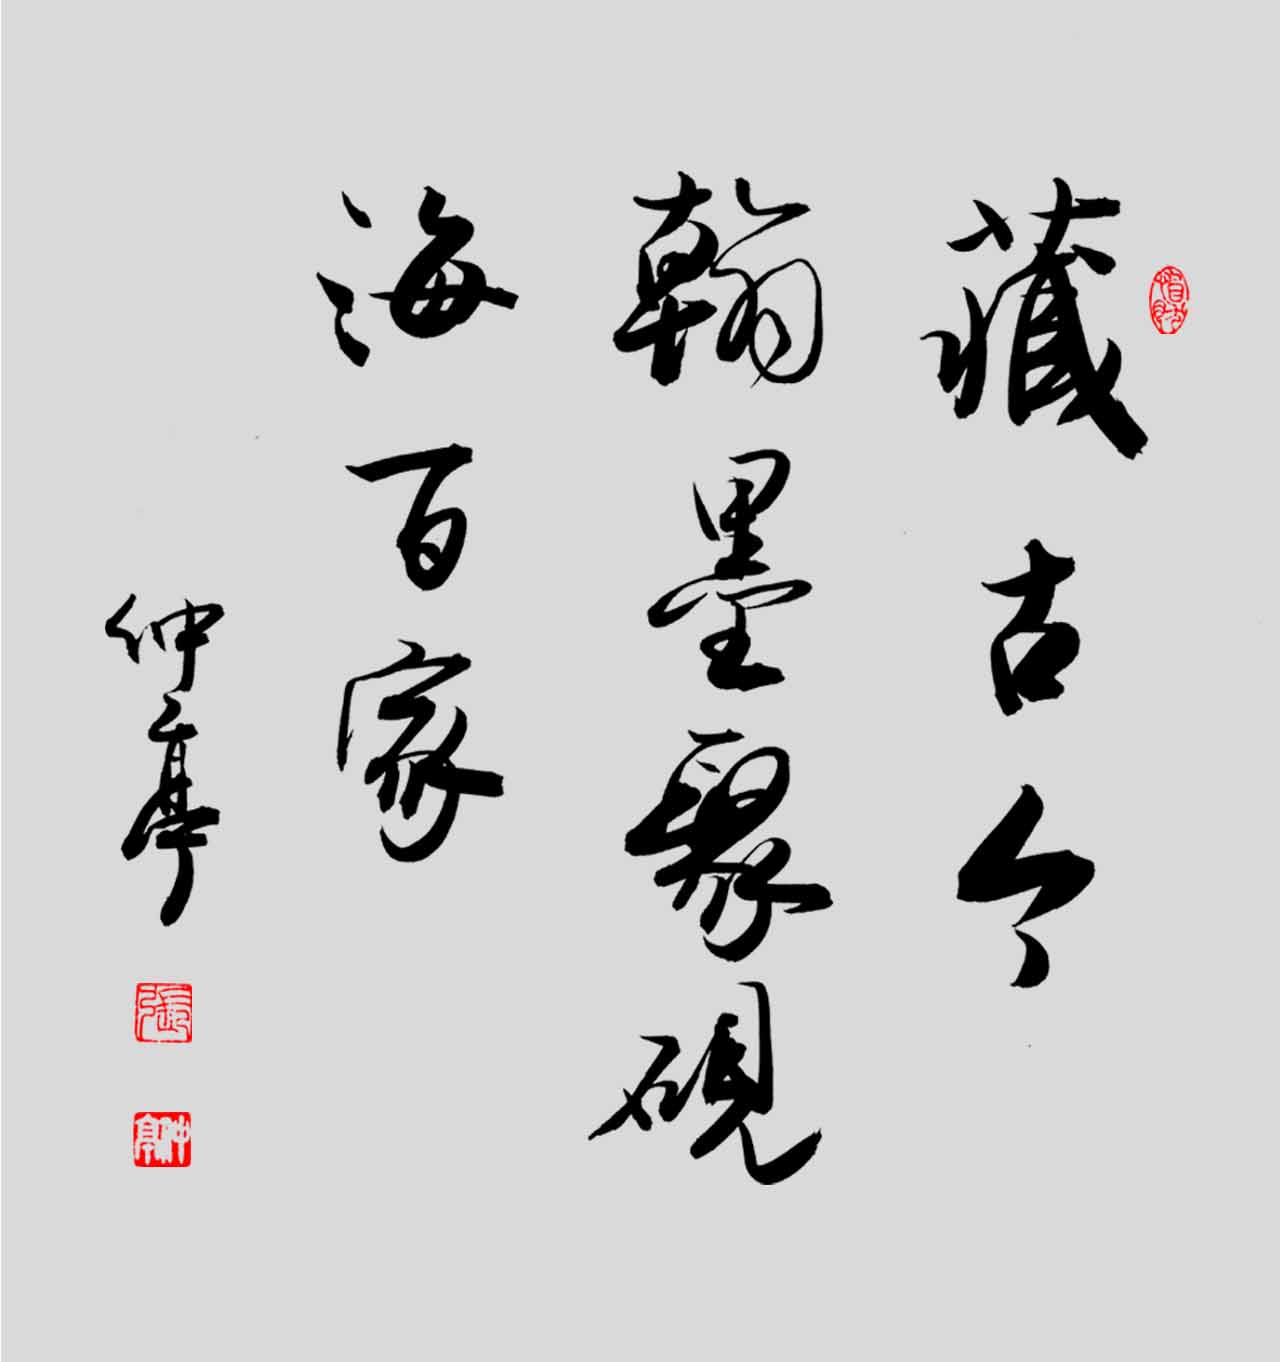 藏古今
翰墨聚砚
海百家
仲亭
張
仲亭